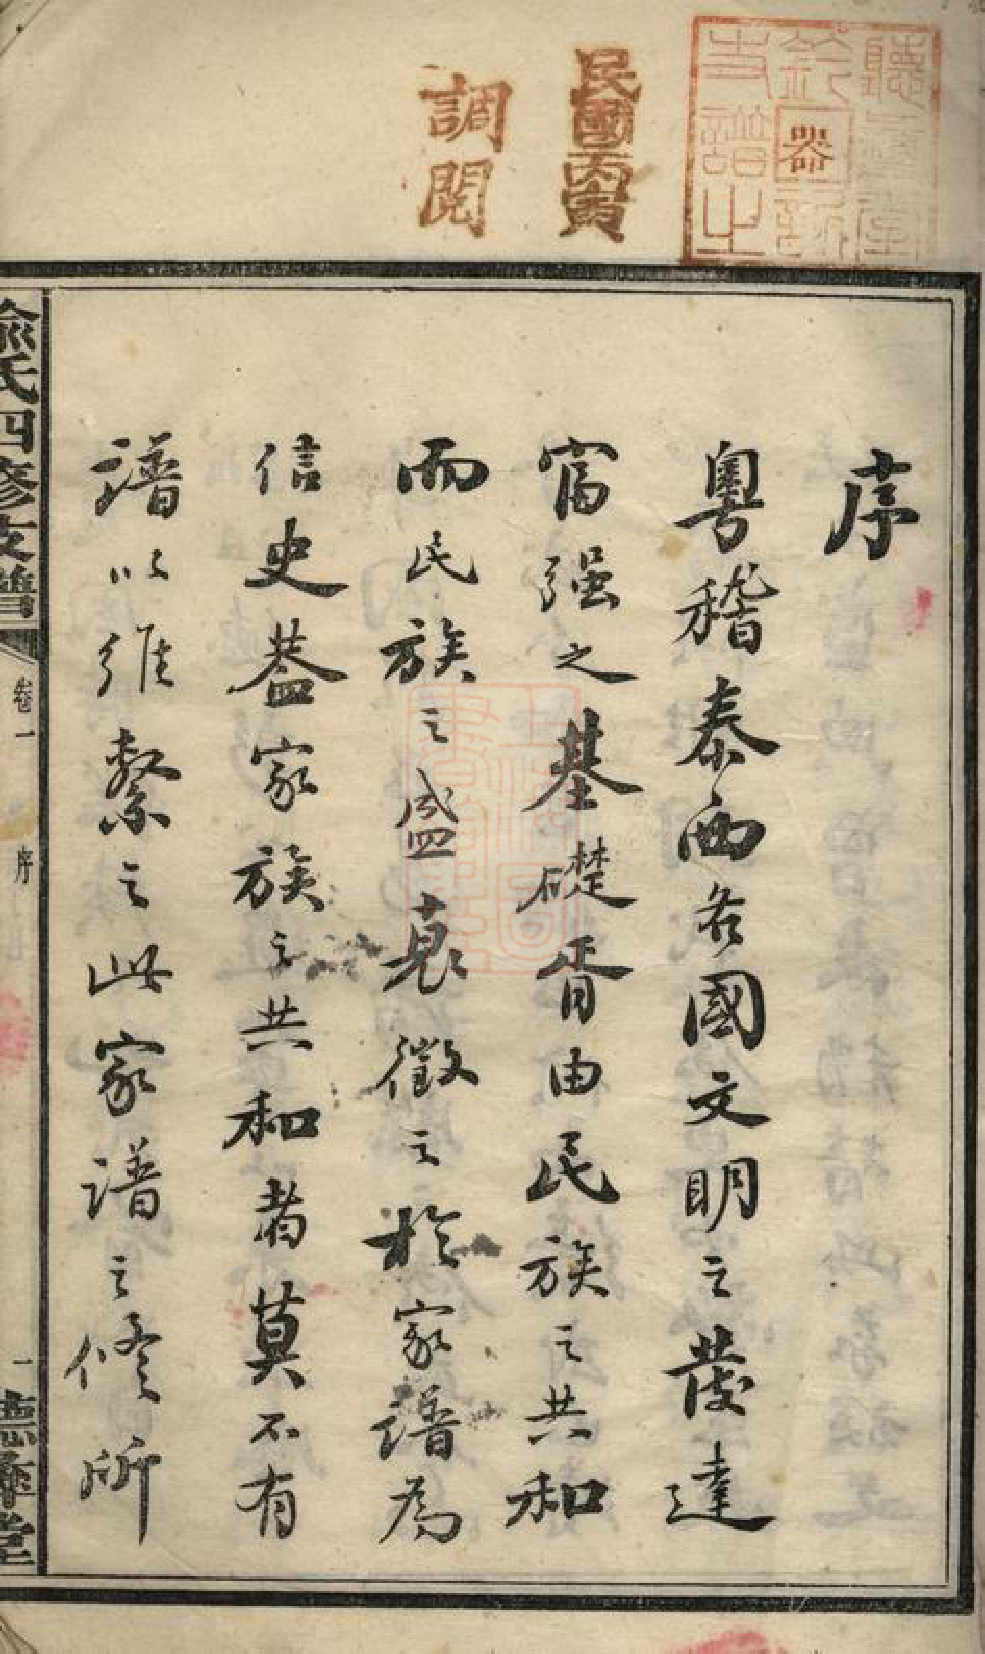 序
粤稽泰西各國文明之發達
富强之基礎胥由民族之共和
而民族之盛衰徵之於家譜為
信史蓋家族之共和者莫不有
譜以維繫之此家譜之修所
民國丙寅
調閱
聽彝堂
欽器
支譜之
俞氏四修支譜
卷一
序
一
聽彝堂